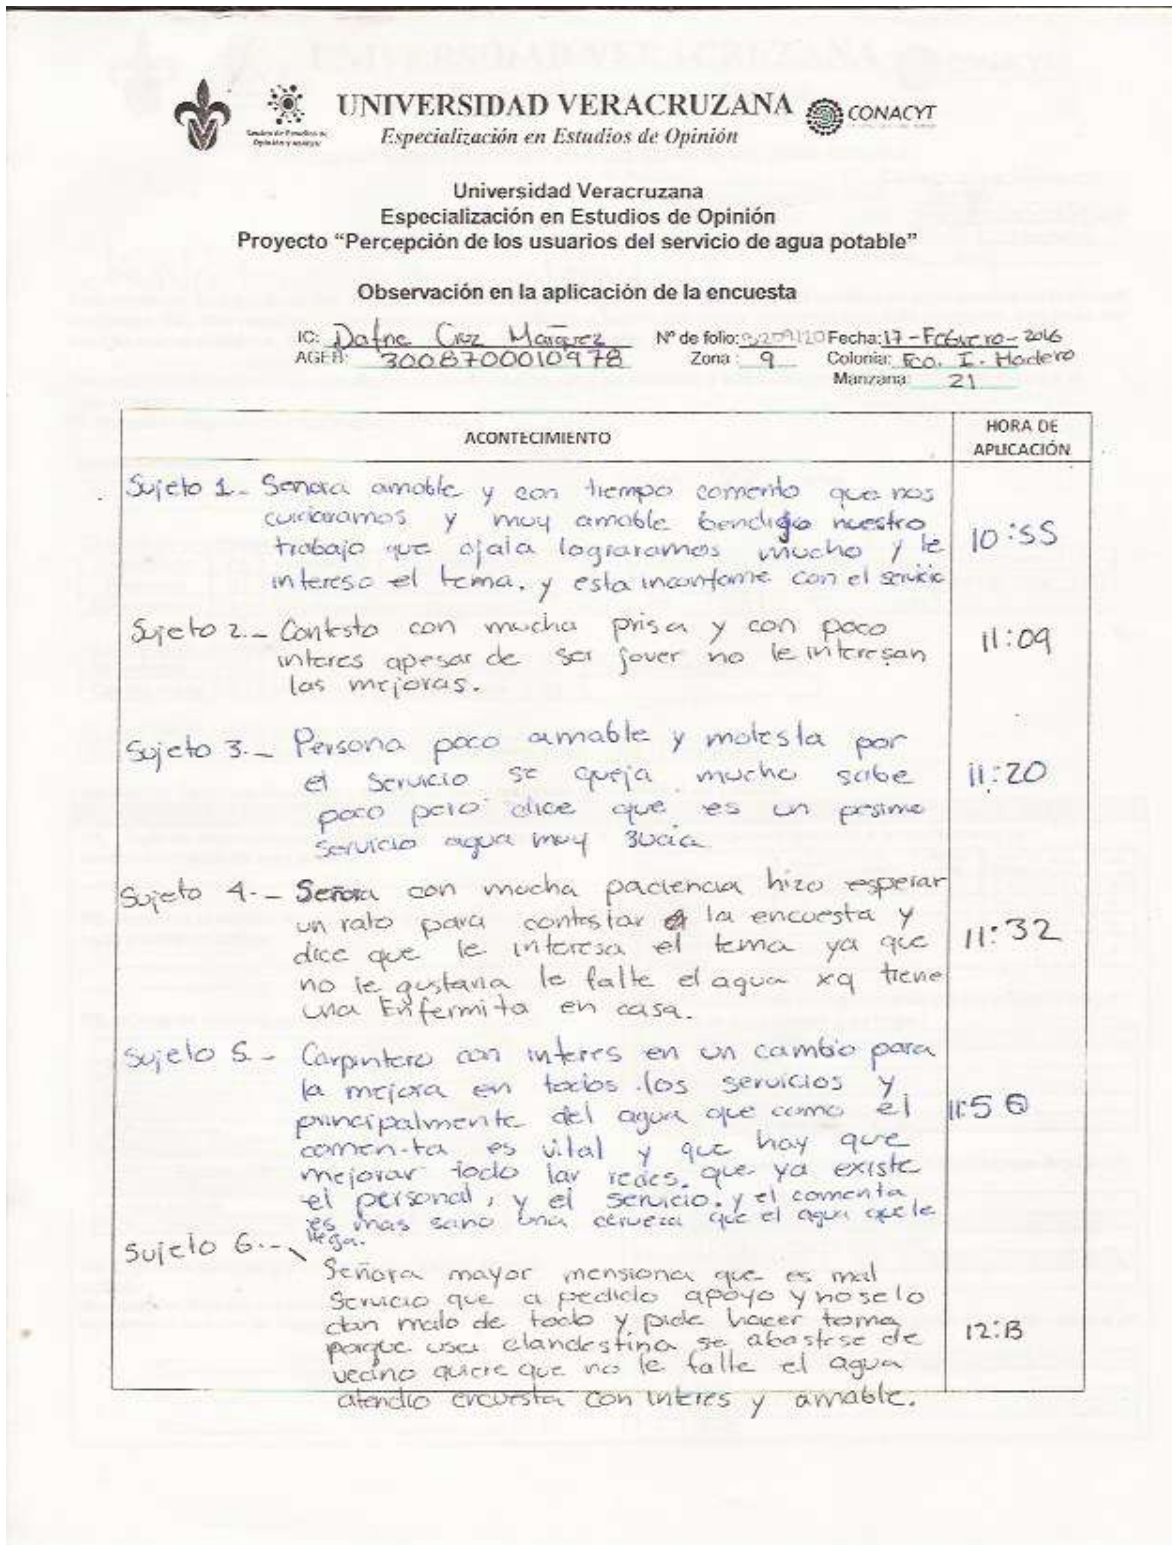 UNIVERSIDAD VERACRUZANA
Especialización en Estudios de Opinión
CONACYT
Universidad Veracruzana
Especialización en Estudios de Opinión
Proyecto “Percepción de los usuarios del servicio de agua potable”
Observación en la aplicación de la encuesta
IC: Dafne Cruz Marquez Nº de folio: Fecha: 17-Febrero-2016
AGEB: 3008700010978 Zona: 9 Colonia: Fco. I. Madero
Manzana: 21
ACONTECIMIENTO
HORA DE
APLICACIÓN
Sujeto 1.- Senora amable y con tiempo comento que nos
cuidaramos y muy amable bendigo nuestro
trabajo que ojala lograramos mucho y le
intereso el tema, y esta inconforme con el servicio
10:55
Sujeto 2.- Contesto con mucha prisa y con poco
interes apesar de ser joven no le interesan
las mejoras.
11:09
Sujeto 3.- Persona poco amable y molesta por
el servicio se queja mucho sabe
poco pero dice que es un pesimo
servicio agua muy sucia
11:20
Sujeto 4.- Señora con mucha paciencia hizo esperar
un rato para contestar a la encuesta y
dice que le interesa el tema ya que
no le gustaria le falte el agua xq tiene
una Enfermita en casa.
11:32
Sujeto 5.- Carpintero con interes en un cambio para
la mejora en todos los servicios y
principalmente del agua que como el
comen-ta es vital y que hay que
mejorar todo lar redes, que ya existe
el personal, y el servicio. y el comenta
es mas sano una cerveza que el agua que le
llega.
11:50
Sujeto 6.-
Señora mayor mensiona que es mal
servicio que a pedido apoyo y no se lo
dan malo de todo y pide hacer toma
porque usa clandestina se abastese de
vecino quiere que no le falte el agua
atendio encuesta con interes y amable.
12:13